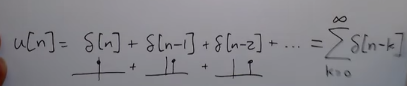 u[n] = δ[n] + δ[n-1] + δ[n-2] + ... = ∞∑k=0 δ[n-k]
+ +